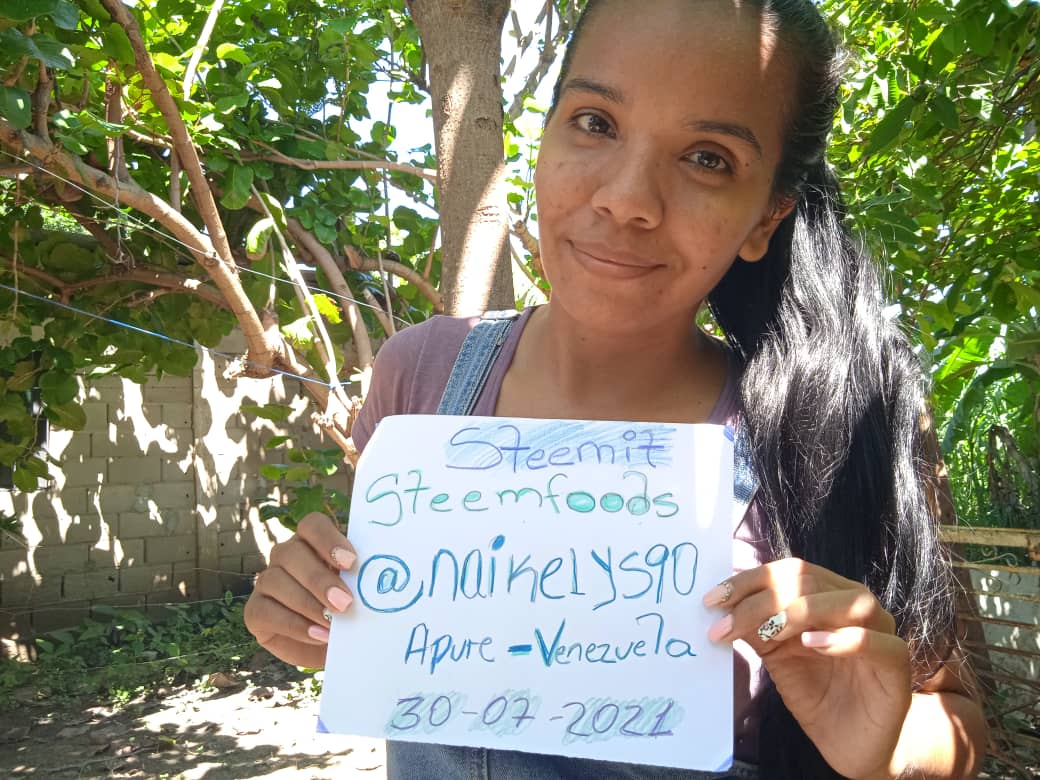 Steemit
Steemfoods
@naikelys90
Apure - Venezuela
30-07-2021